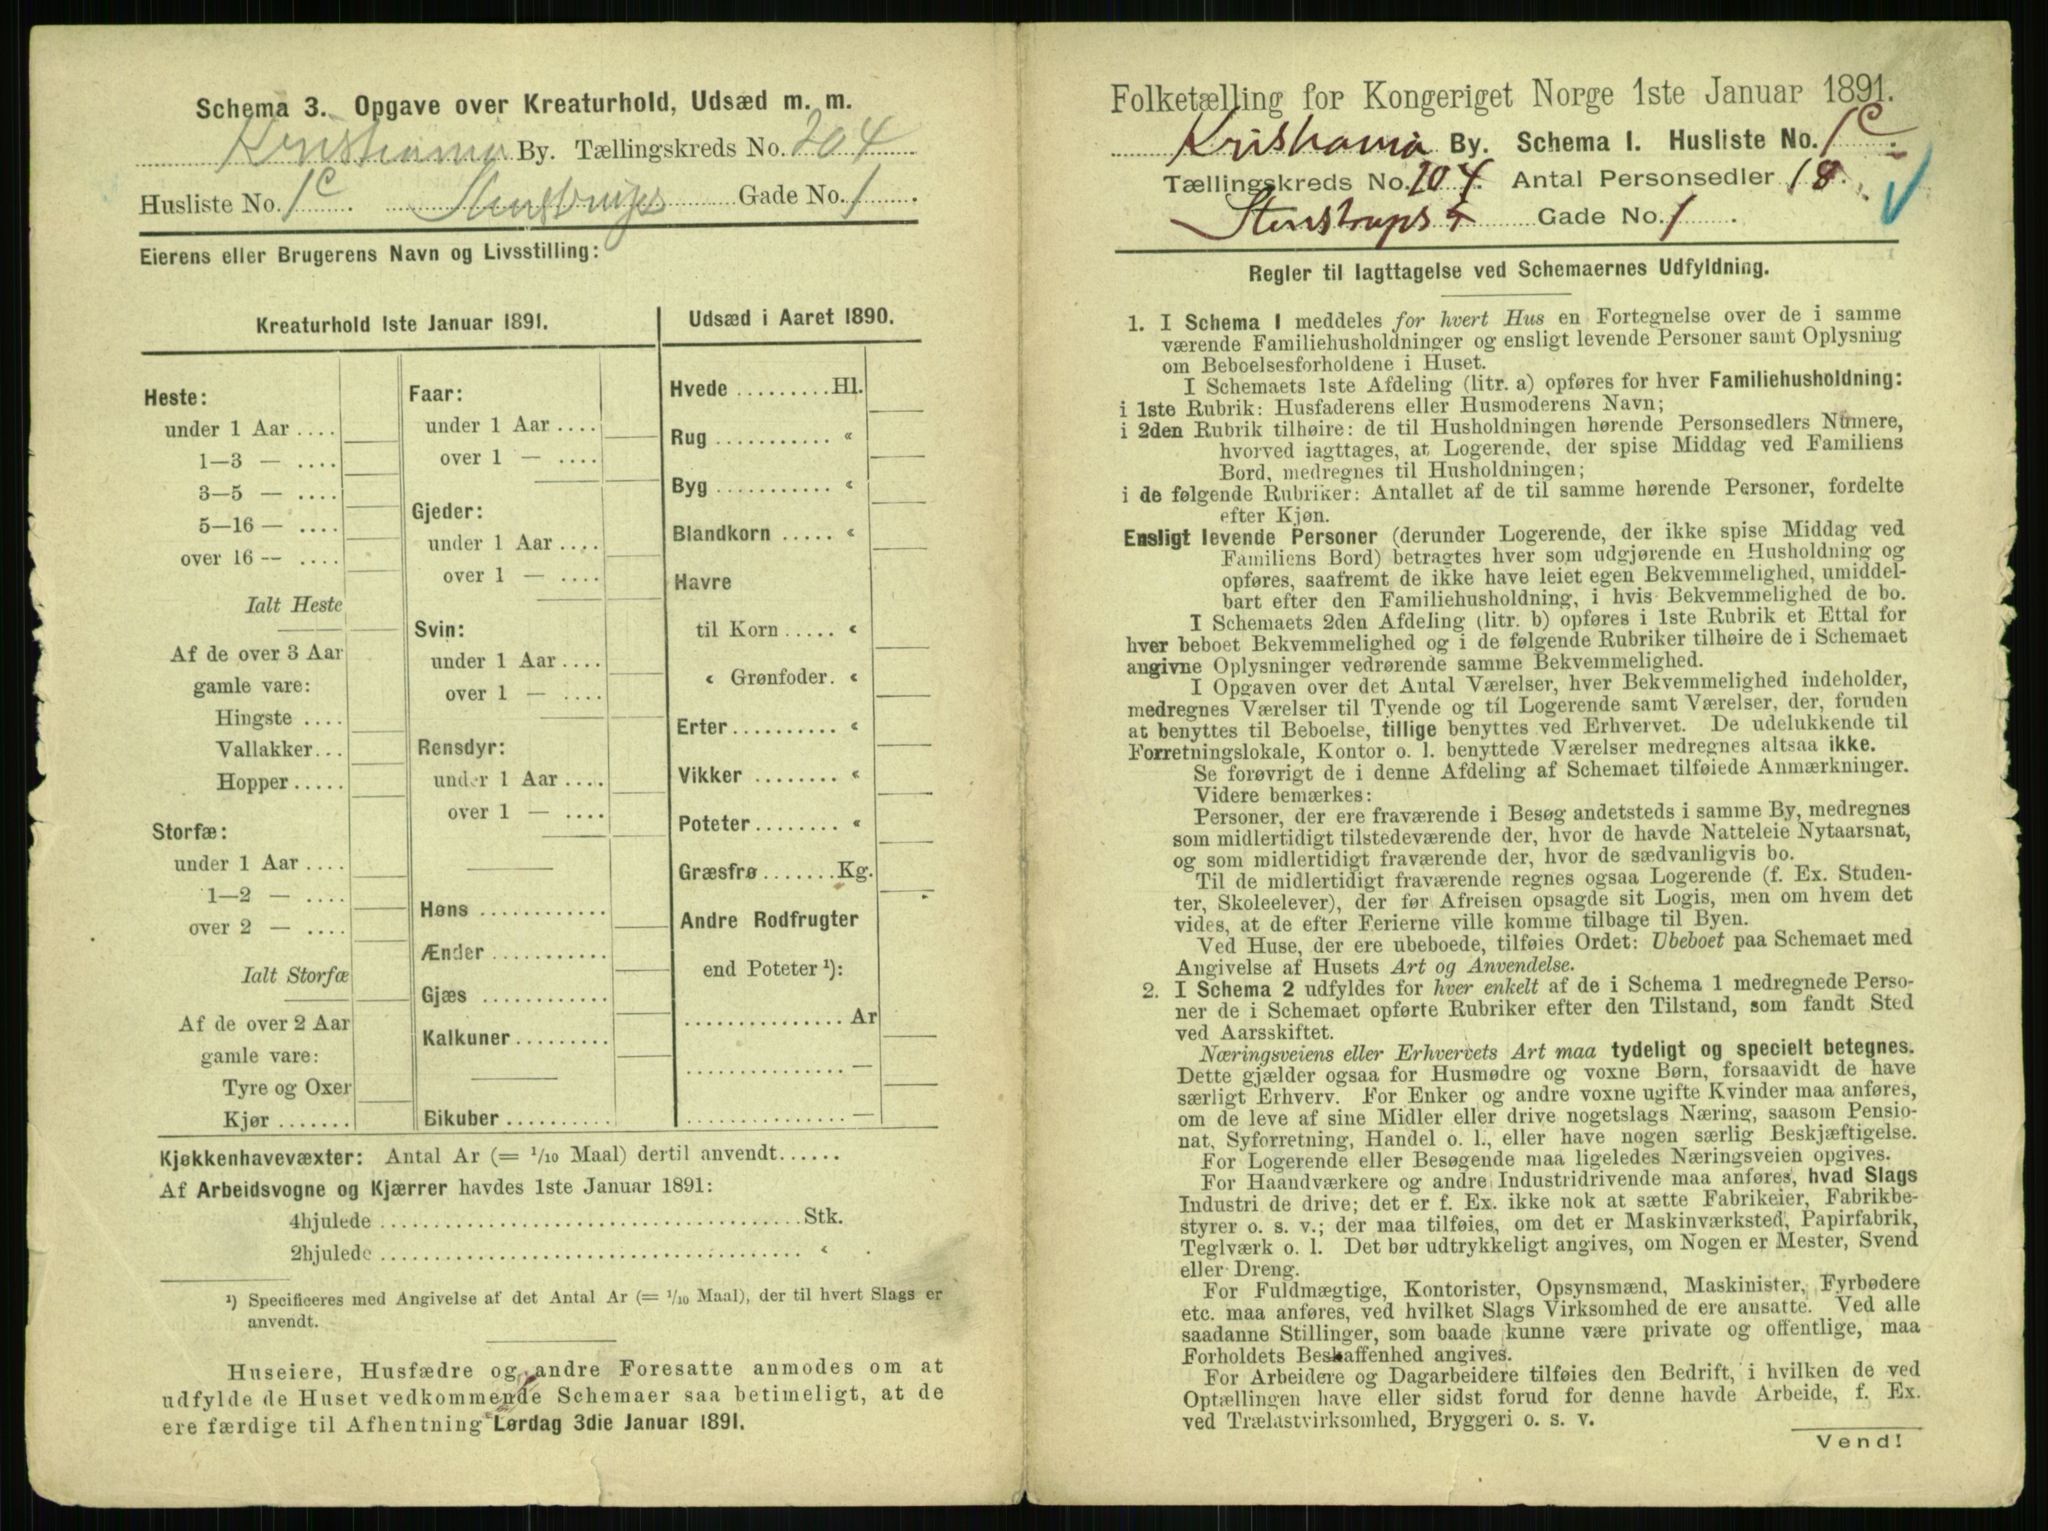 Schema 3. Opgave over Kreaturhold, Udsæd m. m.
Kristiania By. Tællingskreds No. 204
Husliste No. 1c Stenstrups Gade No. 1
Eierens eller Brugerens Navn og Livsstilling:
Kreaturhold 1ste Januar 1891.
Heste:
under 1 Aar ....
1—3 — ....
3—5 — ....
5—16 — ....
over 16 — ....
Ialt Heste
Af de over 3 Aar
gamle vare:
Hingste ....
Vallakker...
Hopper.....
Storfæ:
under 1 Aar ....
1—2 — ....
over 2 — ....
Ialt Storfæ
Af de over 2 Aar
gamle vare:
Tyre og Oxer
Kjør .......
Faar:
under 1 Aar ....
over 1 — ....
Gjeder:
under 1 Aar ....
over 1 — ....
Svin:
under 1 Aar ....
over 1 — ....
Rensdyr:
under 1 Aar ....
over 1 — ....
Høns ............
Ænder ...........
Gjæs ............
Kalkuner.........
Bikuber ..........
Udsæd i Aaret 1890.
Hvede .........Hl.
Rug ........... «
Byg ........... «
Blandkorn ..... «
Havre
til Korn ..... «
« Grønfoder. «
Erter.......... «
Vikker ........ «
Poteter ........ «
Græsfrø .......Kg.
Andre Rodfrugter
end Poteter ¹):
............... Ar
............... —
............... —
Kjøkkenhavevæxter: Antal Ar (= 1/10 Maal) dertil anvendt......
Af Arbeidsvogne og Kjærrer havdes 1ste Januar 1891:
4hjulede ......................................Stk.
2hjulede ...................................... «
¹) Specificeres med Angivelse af det Antal Ar (= 1/10 Maal), der til hvert Slags er
anvendt.
Huseiere, Husfædre og andre Foresatte anmodes om at
udfylde de Huset vedkommende Schemaer saa betimeligt, at de
ere færdige til Afhentning Lørdag 3die Januar 1891.
Folketælling for Kongeriget Norge 1ste Januar 1891.
Kristiania By. Schema I. Husliste No. 1c
Tællingskreds No. 204. Antal Personsedler 18.
Stenstrups Gade No. 1
Regler til Iagttagelse ved Schemaernes Udfyldning.
1. I Schema 1 meddeles for hvert Hus en Fortegnelse over de i samme
værende Familiehusholdninger og ensligt levende Personer samt Oplysning
om Beboelsesforholdene i Huset.
I Schemaets 1ste Afdeling (litr. a) opføres for hver Familiehusholdning:
i 1ste Rubrik: Husfaderens eller Husmoderens Navn;
i 2den Rubrik tilhøire: de til Husholdningen hørende Personsedlers Numere,
hvorved iagttages, at Logerende, der spise Middag ved Familiens
Bord, medregnes til Husholdningen;
i de følgende Rubriker: Antallet af de til samme hørende Personer, fordelte
efter Kjøn.
Ensligt levende Personer (derunder Logerende, der ikke spise Middag ved
Familiens Bord) betragtes hver som udgjørende en Husholdning og
opføres, saafremt de ikke have leiet egen Bekvemmelighed, umiddel-
bart efter den Familiehusholdning, i hvis Bekvemmelighed de bo.
I Schemaets 2den Afdeling (litr. b) opføres i 1ste Rubrik et Ettal for
hver beboet Bekvemmelighed og i de følgende Rubriker tilhøire de i Schemaet
angivne Oplysninger vedrørende samme Bekvemmelighed.
I Opgaven over det Antal Værelser, hver Bekvemmelighed indeholder,
medregnes Værelser til Tyende og til Logerende samt Værelser, der, foruden
at benyttes til Beboelse, tillige benyttes ved Erhvervet. De udelukkende til
Forretningslokale, Kontor o. l. benyttede Værelser medregnes altsaa ikke.
Se forøvrigt de i denne Afdeling af Schemaet tilføiede Anmærkninger.
Videre bemærkes:
Personer, der ere fraværende i Besøg andetsteds i samme By, medregnes
som midlertidigt tilstedeværende der, hvor de havde Natteleie Nytaarsnat,
og som midlertidigt fraværende der, hvor de sædvanligvis bo.
Til de midlertidigt fraværende regnes ogsaa Logerende (f. Ex. Studen-
ter, Skoleelever), der før Afreisen opsagde sit Logis, men om hvem det
vides, at de efter Ferierne ville komme tilbage til Byen.
Ved Huse, der ere ubeboede, tilføies Ordet: Ubeboet paa Schemaet med
Angivelse af Husets Art og Anvendelse.
2. I Schema 2 udfyldes for hver enkelt af de i Schema 1 medregnede Perso-
ner de i Schemaet opførte Rubriker efter den Tilstand, som fandt Sted
ved Aarsskiftet.
Næringsveiens eller Erhvervets Art maa tydeligt og specielt betegnes.
Dette gjælder ogsaa for Husmødre og voxne Børn, forsaavidt de have
særligt Erhverv. For Enker og andre voxne ugifte Kvinder maa anføres,
om de leve af sine Midler eller drive nogetslags Næring, saasom Pensio-
nat, Syforretning, Handel o. l., eller have nogen særlig Beskjæftigelse.
For Logerende eller Besøgende maa ligeledes Næringsveien opgives.
For Haandværkere og andre Industridrivende maa anføres, hvad Slags
Industri de drive; det er f. Ex. ikke nok at sætte Fabrikeier, Fabrikbe-
styrer o. s. v.; der maa tilføies, om det er Maskinværksted, Papirfabrik,
Teglværk o. l. Det bør udtrykkeligt angives, om Nogen er Mester, Svend
eller Dreng.
For Fuldmægtige, Kontorister, Opsynsmænd, Maskinister, Fyrbødere
etc. maa anføres, ved hvilket Slags Virksomhed de ere ansatte. Ved alle
saadanne Stillinger, som baade kunne være private og offentlige, maa
Forholdets Beskaffenhed angives.
For Arbeidere og Dagarbeidere tilføies den Bedrift, i hvilken de ved
Optællingen have eller sidst forud for denne havde Arbeide, f. Ex.
ved Trælastvirksomhed, Bryggeri o. s. v.
Vend!